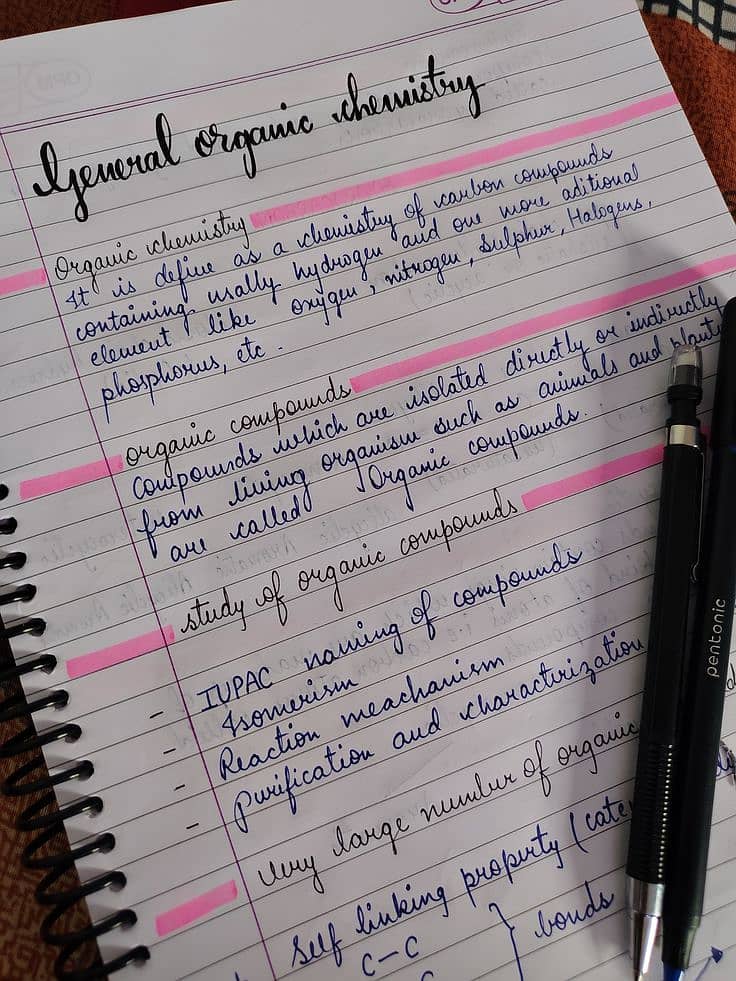 General organic chemistry
Organic chemistry
It is define as a chemistry of carbon compounds
containing usally hydrogen and one more aditional
element like oxygen, nitrogen, Sulphur, Halogens,
phosphorus, etc.
organic compounds
Compounds which are isolated directly or indirectly
from living organism such as animals and plants
are called Organic compounds.
study of organic compounds
- IUPAC naming of compounds
- Isomerism
- Reaction meachanism
- Purification and characterization
very large number of organic
Self linking property (cate
C-C
} bonds
pentonic